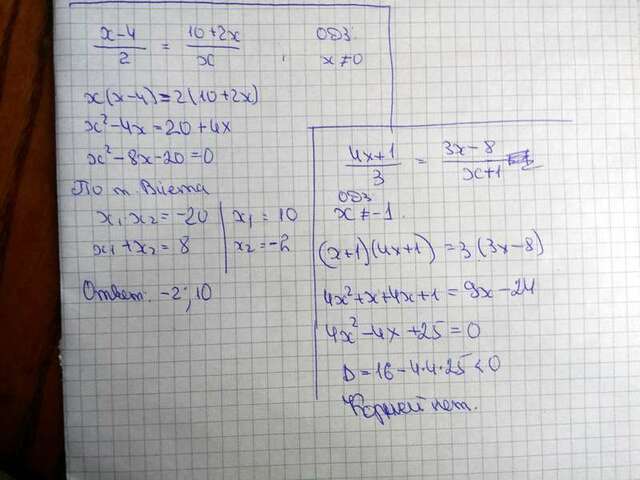 x-4/2 = 10+2x/x , ОДЗ:
x≠0
x(x-4)=2(10+2x)
x²-4x=20+4x
x²-8x-20=0
По т. Виета
x₁x₂=-20 | x₁=10
x₁+x₂=8 | x₂=-2
Ответ: -2; 10
4x+1/3 = 3x-8/x+1
ОДЗ
x≠-1.
(x+1)(4x+1)=3(3x-8)
4x²+x+4x+1=9x-24
4x²-4x+25=0
D=16-4·4·25<0
Корней нет.